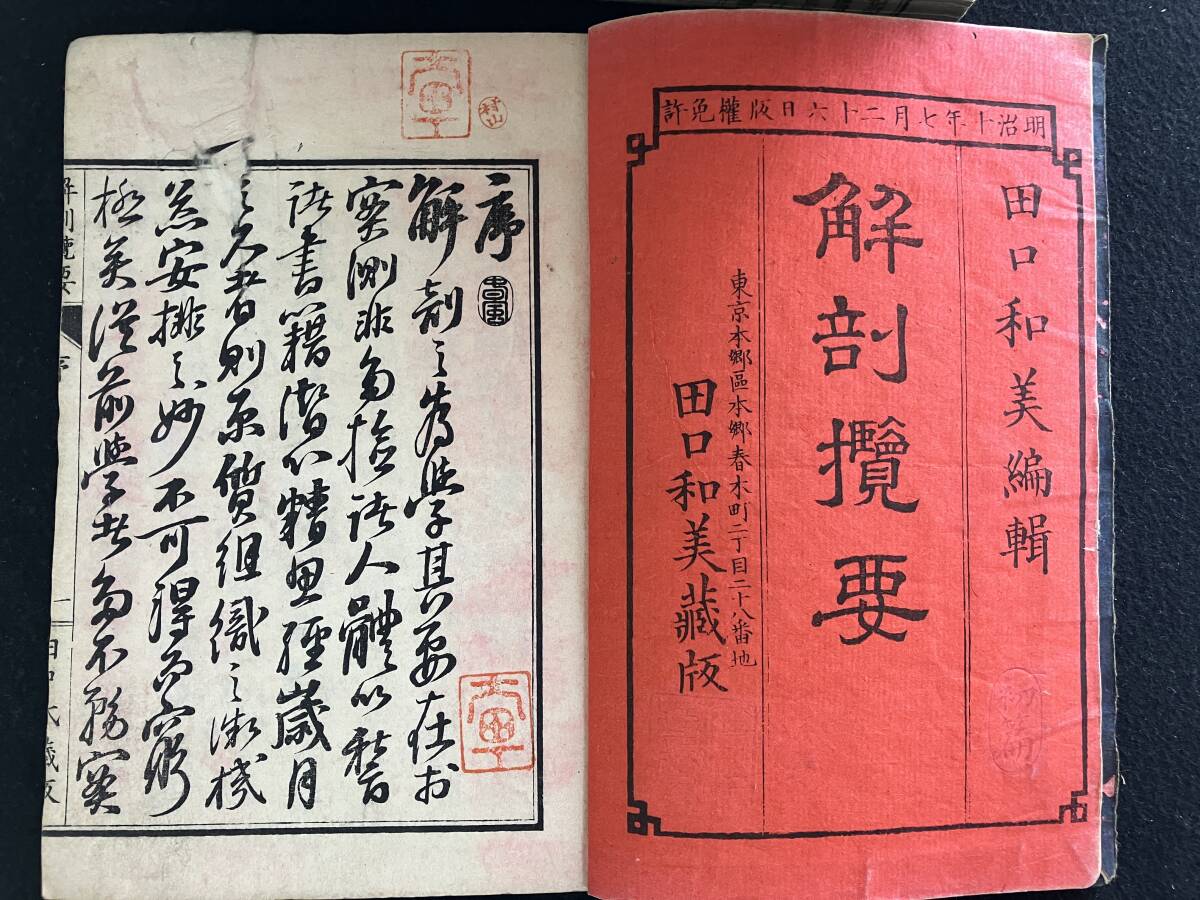 明治十年七月二十六日版權免許
田口和美編輯
解剖攬要
東京本郷區本郷春木町二丁目二十八番地
田口和美藏版
序
解剖之為學其要在於
實測非多檢諸人體以稽
諸書籍潛心精思經歳月
之久者則原質組織之微機
安排之妙不可得而窮
極矣從前學者多不務實
解剖攬要
序
一
田口氏藏版
村山